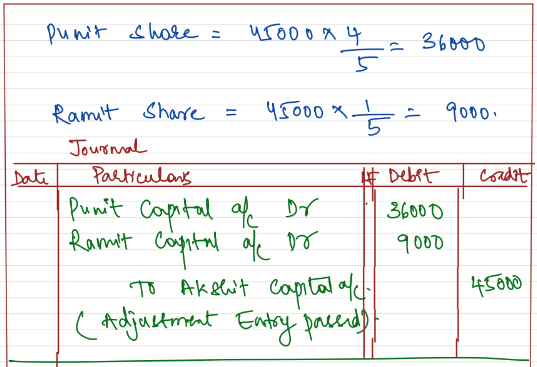 Punit Share = 45000 × 4/5 = 36000
Ramit Share = 45000 × 1/5 = 9000.
Journal
Date Particulars lf Debit Credit
Punit Capital a/c Dr 36000
Ramit Capital a/c Dr 9000
To Akshit Capital a/c. 45000
(Adjustment Entry passed).